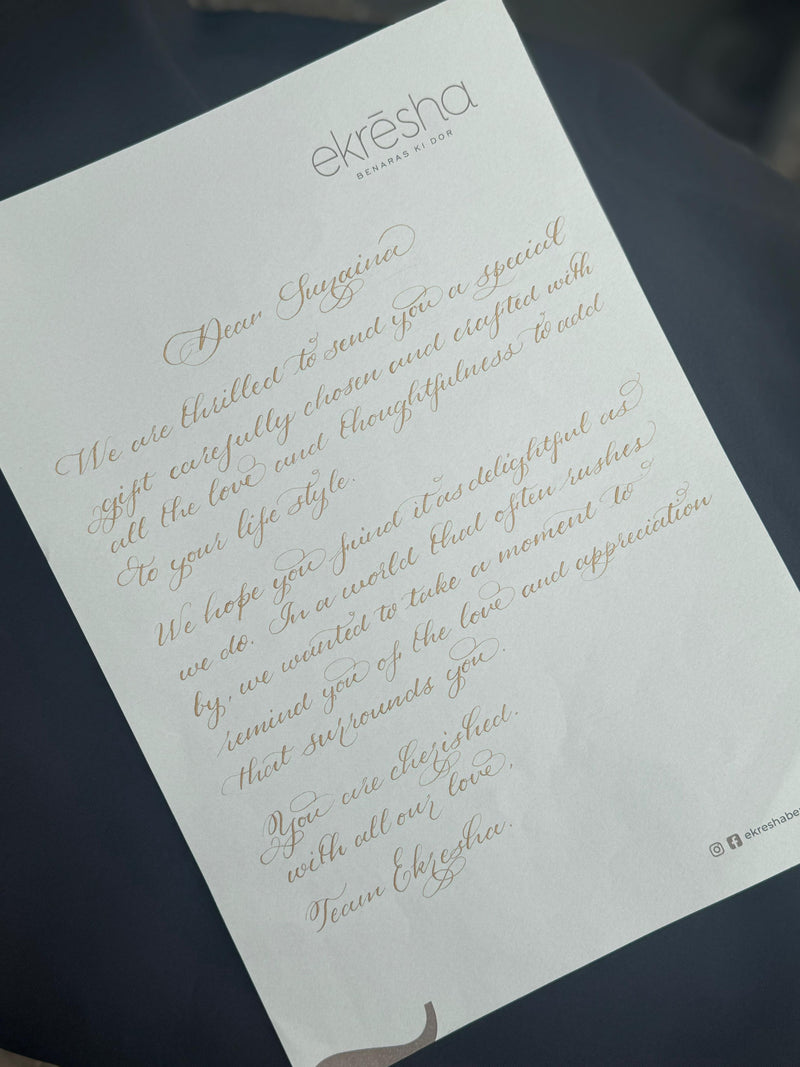 ekrēsha
BENARAS KI DOR
Dear Sunaina
We are thrilled to send you a special
gift carefully chosen and crafted with
all the love and thoughtfulness to add
to your life style.
We hope you find it as delightful as
we do. In a world that often rushes
by, we wanted to take a moment to
remind you of the love and appreciation
that surrounds you.
You are cherished.
with all our love,
Team Ekresha.
ekreshabe